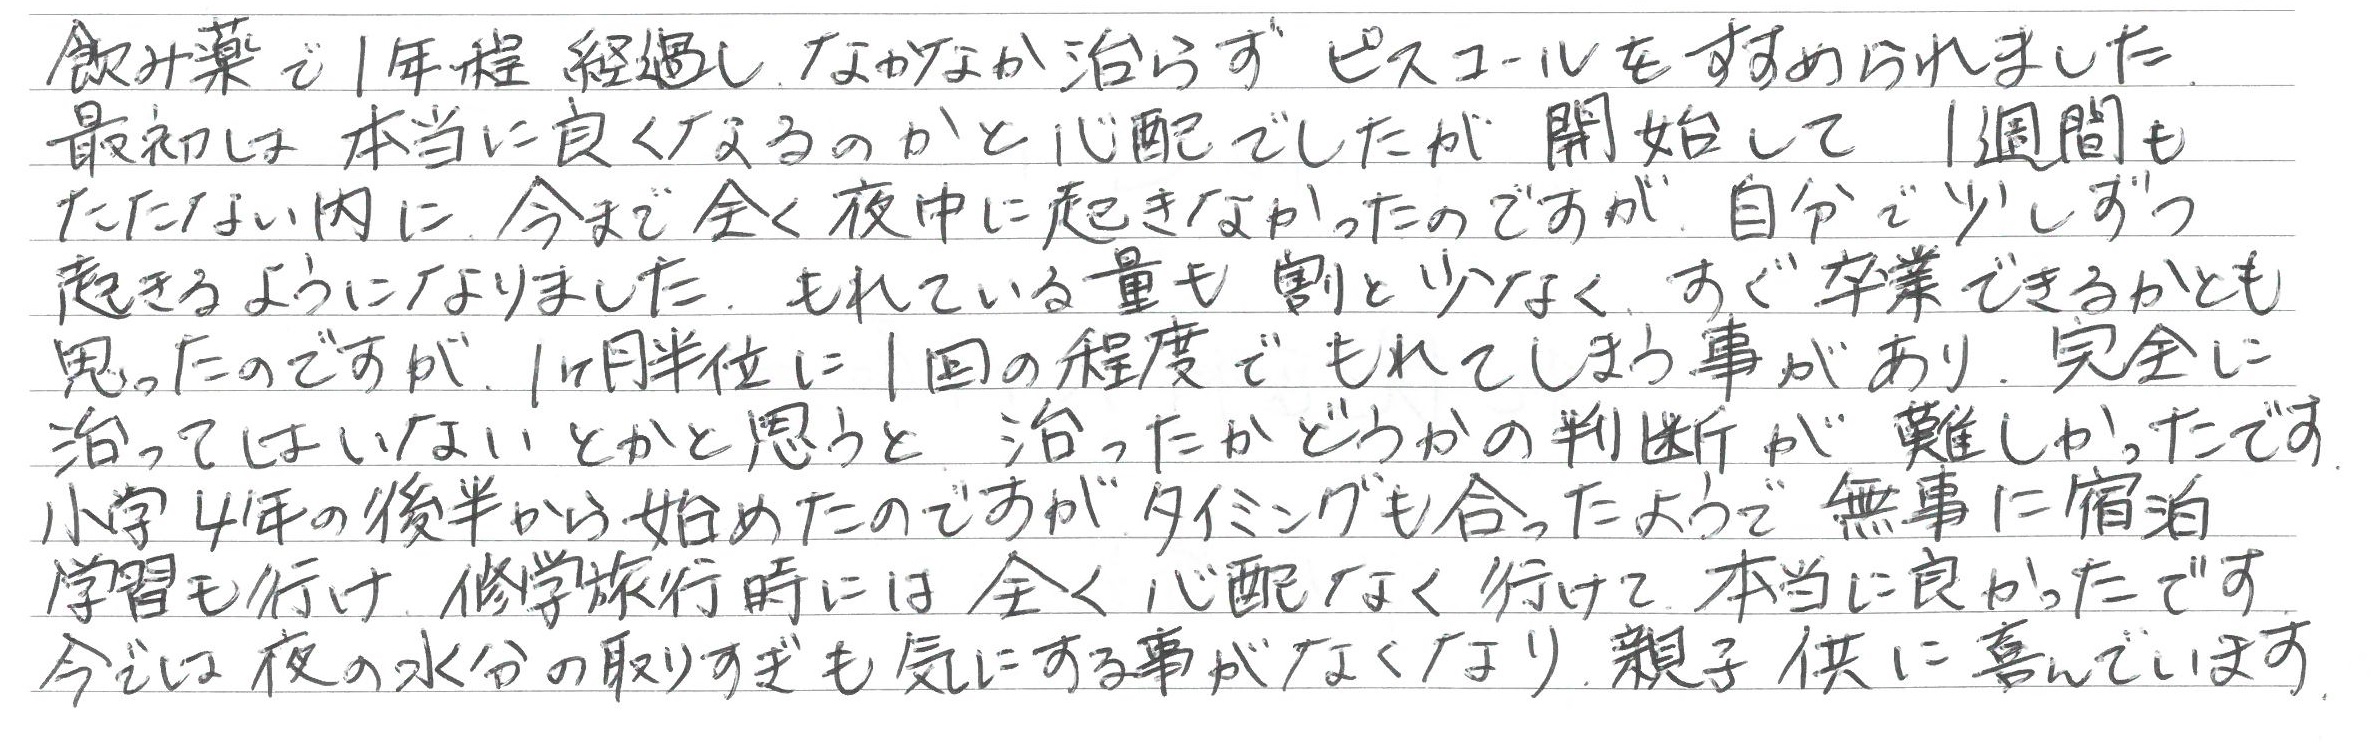 飲み薬で1年程 経過し、なかなか治らず ピスコールをすすめられました。
最初は 本当に良くなるのかと心配でしたが 開始して 1週間も
たたない内に、今まで全く夜中に起きなかったのですが、自分で少しずつ
起きるようになりました。もれている量も 割と少なく、すぐ卒業できるかとも
思ったのですが、1ヶ月半位に1回の程度で もれてしまう事があり、完全に
治ってはいないとかと思うと、治ったかどうかの判断が 難しかったです。
小学4年の後半から始めたのですが、タイミングも合ったようで 無事に宿泊
学習も行け、修学旅行時には 全く心配なく行けて、本当に良かったです。
今では夜の水分の取りすぎも気にする事がなくなり、親子供に喜んでいます。